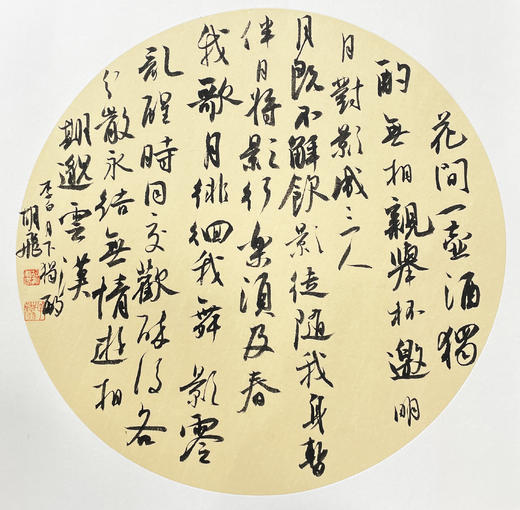 花间一壶酒独
酌无相亲举杯邀明
月对影成三人
月既不解饮影徒随我身暂
伴月将影行乐须及春
我歌月徘徊我舞影零
乱醒时同交欢醉后各
分散永结无情游相
期邈云汉
李白月下独酌
胡飞